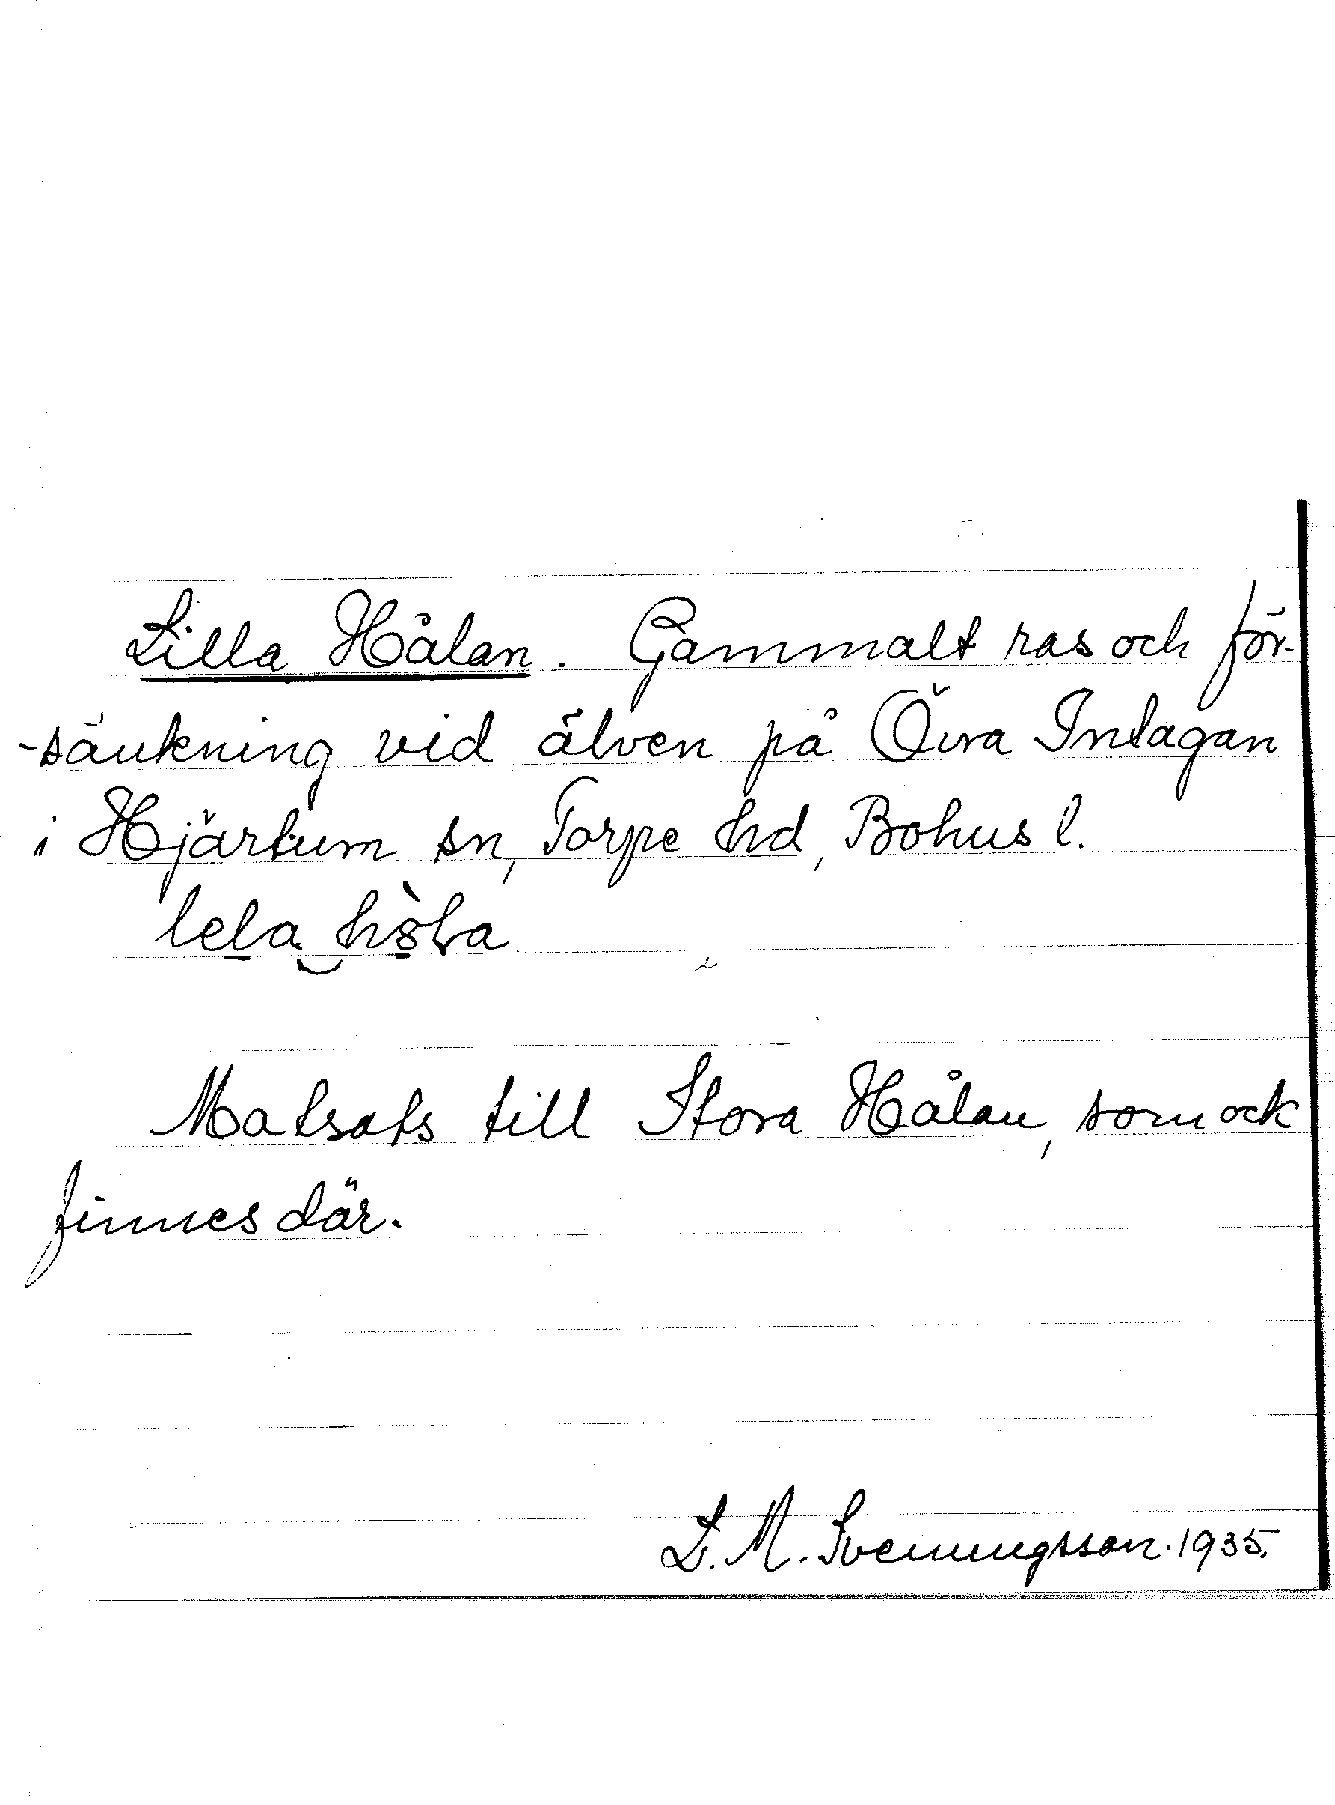 Lilla Hålan. Gammalt ras och för-
-sänkning vid älven på Övra Intagan
i Hjärtum sn, Torpe hd, Bohus l.
lela
Motsats till Stora Hålan, som ock
finnes där.
L. M. Svenungsson. 1935.